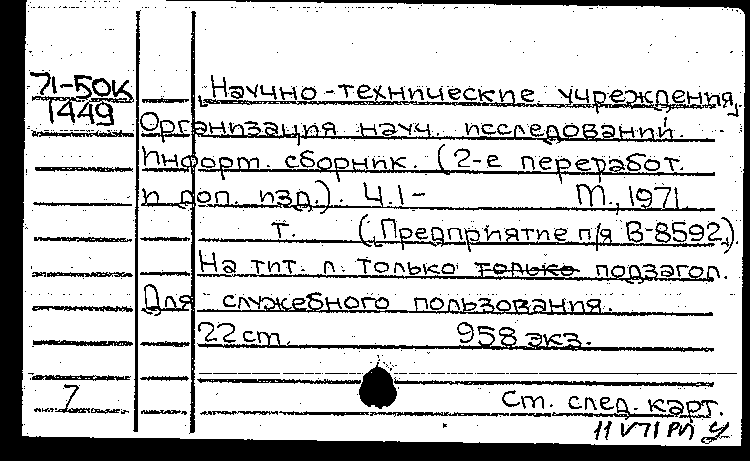 71-50К Научно-технические учреждения,
1449
Организация науч. исследований.
Информ. сборник. (2-е переработ.
и доп. изд.). Ч.1- М., 1971.
т. („Предприятие п/я В-8592„).
На тит. л. только только подзагол.
Для служебного пользования.
22 ст. 958 экз.
7 Ст. след. карт.
11 V 71 РП